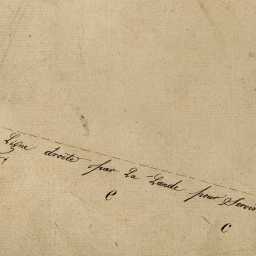 Ligne droite par La Lande pour Servir
e
c